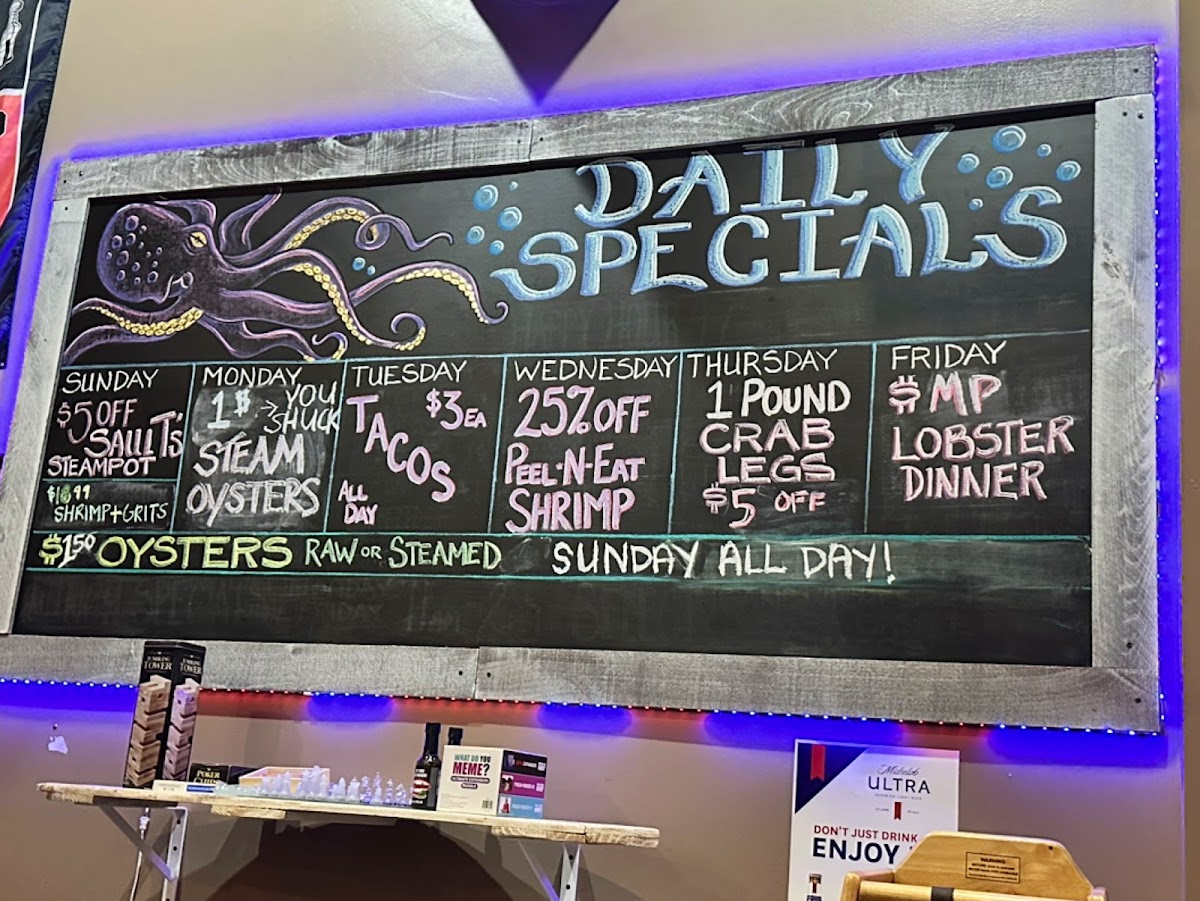 DAILY
SPECIALS
SUNDAY
$5 OFF
SAULT'S
STEAMPOT
SHRIMP+GRITS
MONDAY
1$ → YOU
SHUCK
STEAM
OYSTERS
TUESDAY
$3 EA
TACOS
ALL
DAY
WEDNESDAY
25% OFF
PEEL-N-EAT
SHRIMP
THURSDAY
1 POUND
CRAB
LEGS
$5 OFF
FRIDAY
$ MP
LOBSTER
DINNER
$1.50 OYSTERS RAW OR STEAMED SUNDAY ALL DAY!
TUMBLING
TOWER
TUMBLING
TOWER
POKER
CHIPS
WHAT DO YOU
MEME?
Michelob
ULTRA
DON'T JUST DRINK
ENJOY
WARNING